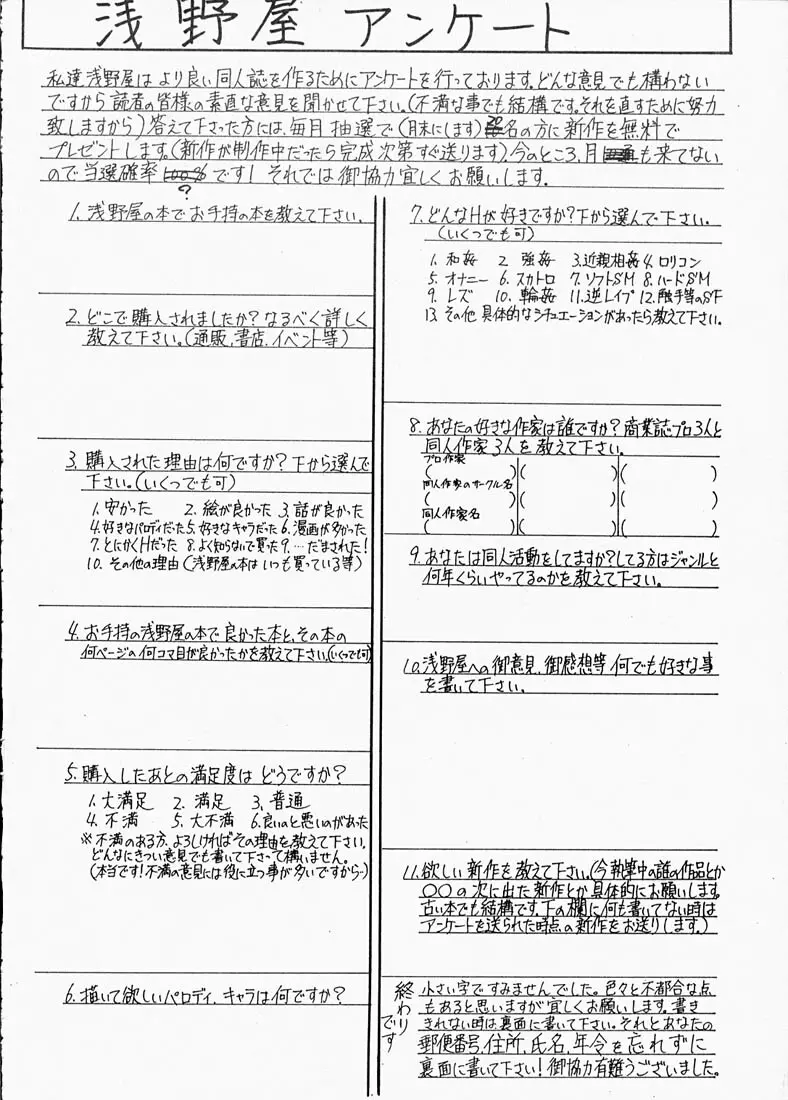 浅野屋 アンケート
私達浅野屋はより良い同人誌を作るためにアンケートを行っております。どんな意見でも構わない
ですから読者の皆様の素直な意見を聞かせて下さい。(不満な事でも結構です。それを直すために努力
致しますから)答えて下さった方には、毎月抽選で(月末にします)名の方に新作を無料で
プレゼントします。(新作が制作中だったら完成次第すぐ送ります)今のところ、月も来てない
ので当選確率100%です! それでは御協力宜しくお願いします。
?
1. 浅野屋の本でお手持の本を教えて下さい。
2. どこで購入されましたか?なるべく詳しく
教えて下さい。(通販、書店、イベント等)
3. 購入された理由は何ですか?下から選んで
下さい。(いくつでも可)
1. 安かった 2. 絵が良かった 3. 話が良かった
4. 好きなパロディだった 5. 好きなキャラだった 6. 漫画が多かった
7. とにかくHだった 8. よく知らないで買った 9. …だまされた!
10. その他の理由(浅野屋の本はいつも買っている等)
4. お手持の浅野屋の本で良かった本と、その本の
何ページの何コマ目が良かったかを教えて下さい。(いくつでも可)
5. 購入したあとの満足度はどうですか?
1. 大満足 2. 満足 3. 普通
4. 不満 5. 大不満 6. 良いのと悪いのがあった
※不満のある方、よろしければその理由を教えて下さい。
どんなにきつい意見でも書いて下さって構いません。
(本当です!不満の意見には役に立つ事が多いですから…)
6. 描いて欲しいパロディ、キャラは何ですか?
7. どんなHが好きですか?下から選んで下さい。
(いくつでも可)
1. 和姦 2. 強姦 3. 近親相姦 4. ロリコン
5. オナニー 6. スカトロ 7. ソフトSM 8. ハードSM
9. レズ 10. 輪姦 11. 逆レイプ 12. 触手等のSF
13. その他 具体的なシチュエーションがあったら教えて下さい。
8. あなたの好きな作家は誰ですか?商業誌プロ3人と
同人作家3人を教えて下さい。
プロ作家
( )( )( )
同人作家のサークル名
( )( )( )
同人作家名
( )( )( )
9. あなたは同人活動をしてますか?してる方はジャンルと
何年くらいやってるのかを教えて下さい。
10. 浅野屋への御意見、御感想等 何でも好きな事
を書いて下さい。
11. 欲しい新作を教えて下さい。(今執筆中の誰の作品とか
〇〇の次に出た新作とか具体的にお願いします。
古い本でも結構です。下の欄に何も書いてない時は
アンケートを送られた時点の新作をお送りします。)
終わりです
小さい字ですみませんでした。色々と不都合な点
もあると思いますが宜しくお願いします。書き
きれない時は裏面に書いて下さい。それとあなたの
郵便番号、住所、氏名、年令を忘れずに
裏面に書いて下さい!御協力有難うございました。